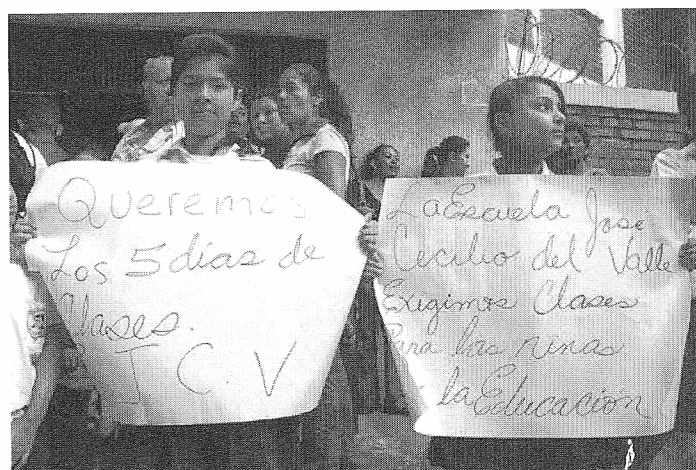 Queremos
Los 5 días de
Clases.
J. C. V
La Escuela José
Cecilio del Valle
Exigimos Clases
Para las niñas
la Educación